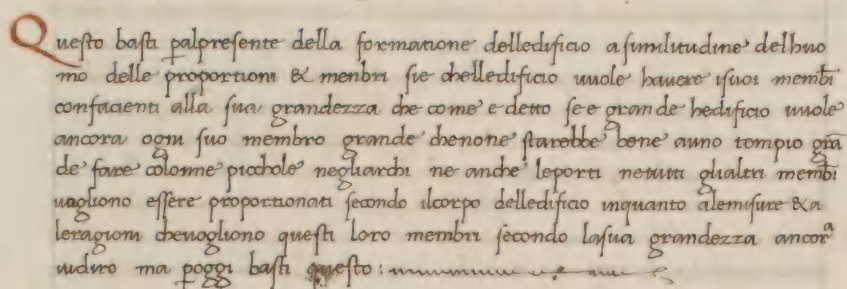 Questo basti ꝑalpresente della formatione delledificio asimilitudine delhuo
mo delle proportioni & menbri sie chelledificio uuole hauere isuoi membri
confacienti alla sua grandezza che come e detto se e grande hedificio uuole
ancora ogni suo membro grande chenone starebbe bene auno tempio grā
de fare colonne picchole negliarchi ne anche leporti netutti glialtri membri
uogliono essere proportionati secondo ilcorpo delledificio inquanto alemisure &a
leragioni cheuogliono questi loro membri secondo lasua grandezza ancora
uidiro ma ꝑoggi basti questo: